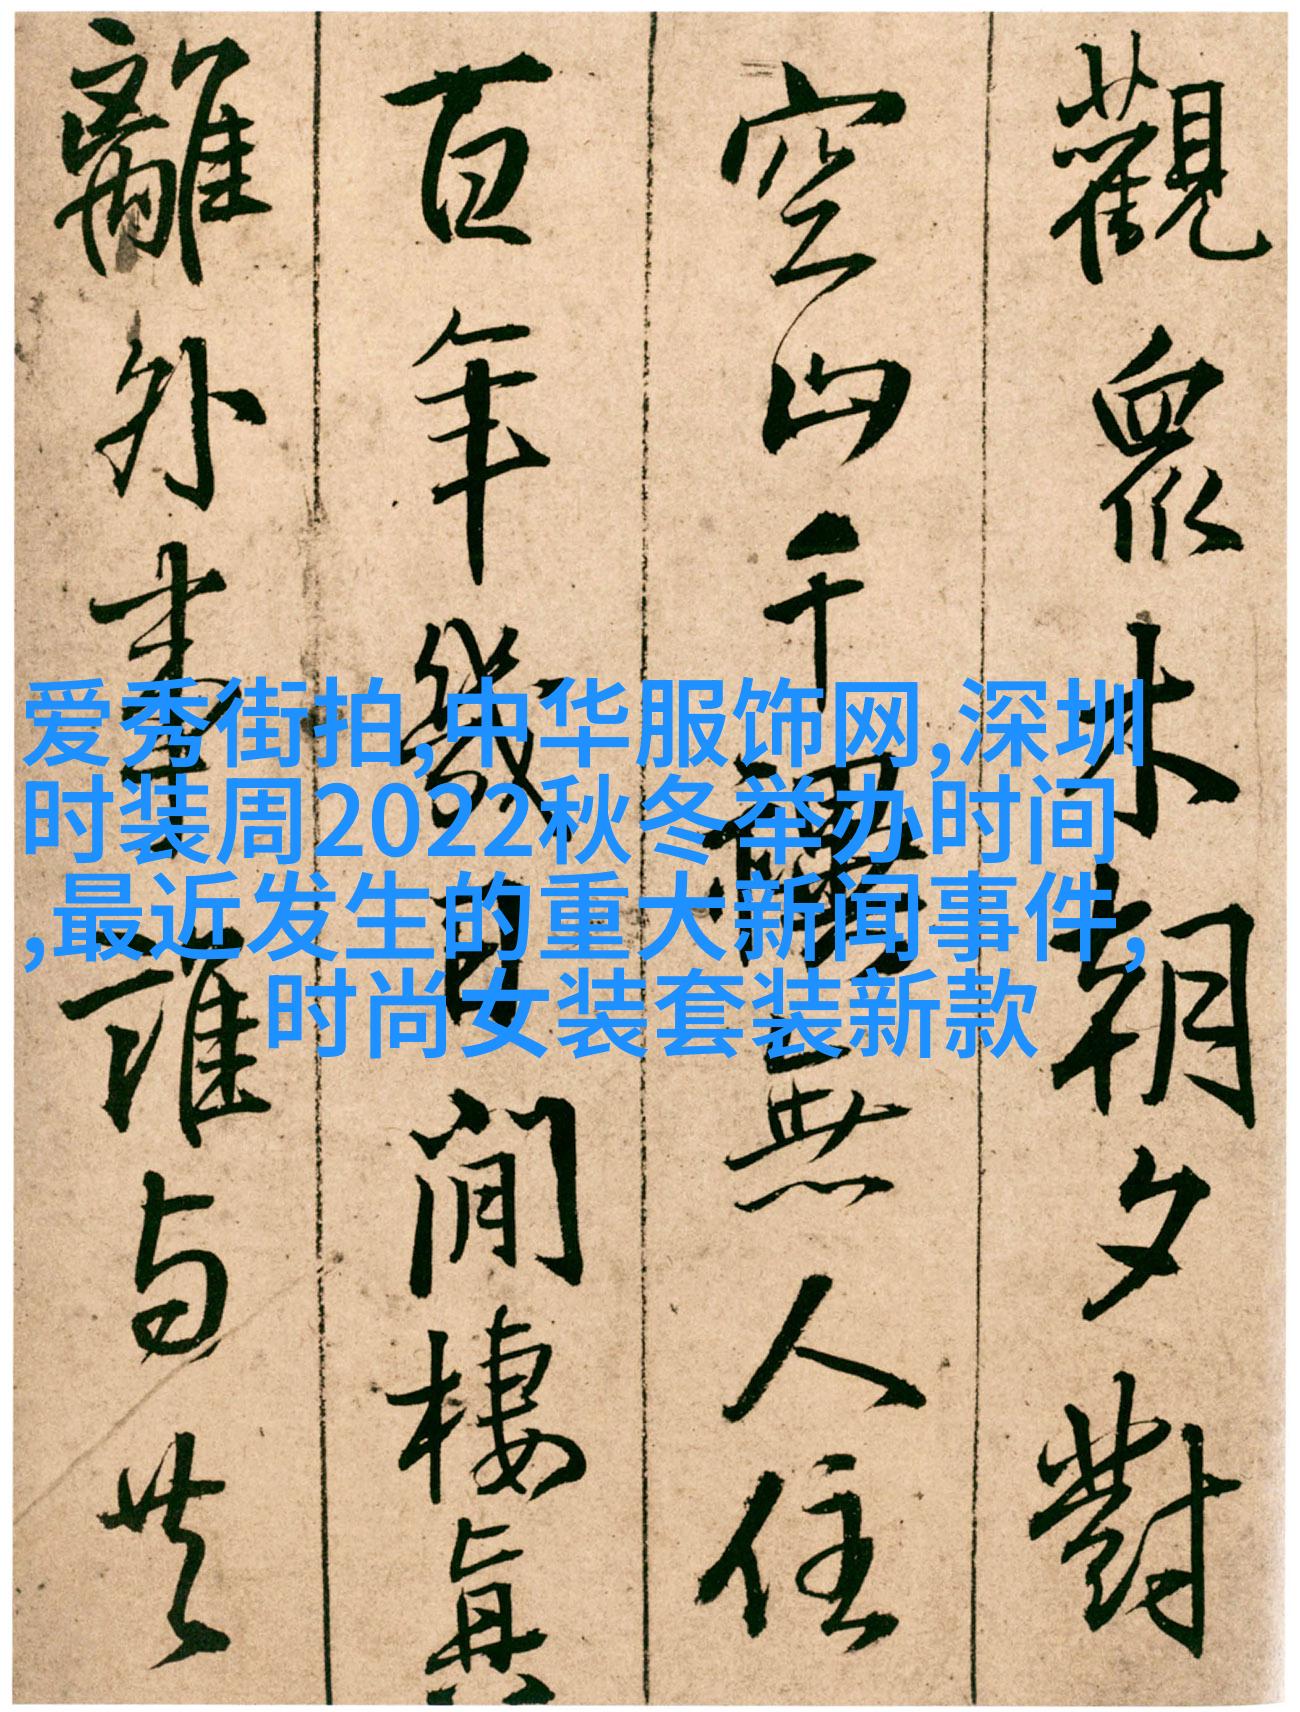 觀眾木朝夕對
空山千無人住
百年幾日閒棲真
離外事誰与共
爱秀街拍,中华服饰网,深圳
时装周2022秋冬举办时间
,最近发生的重大新闻事件,
时尚女装套装新款